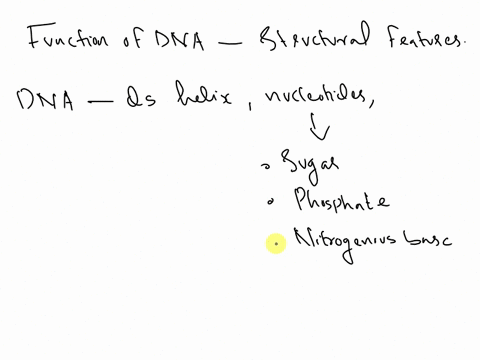 Function of DNA — Structural features.
DNA — ds helix, nucleotides,
• Sugar
• Phosphate
• Nitrogenius base